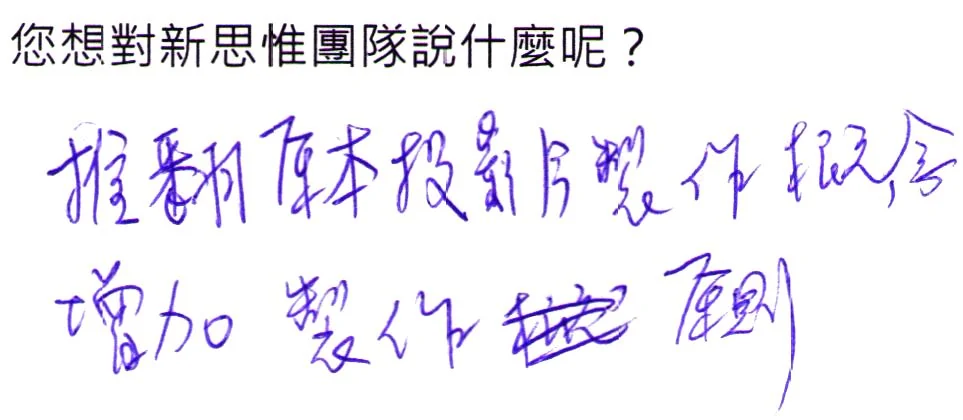 您想對新思惟團隊說什麼呢？
推翻原本投影片製作概念
增加製作原則